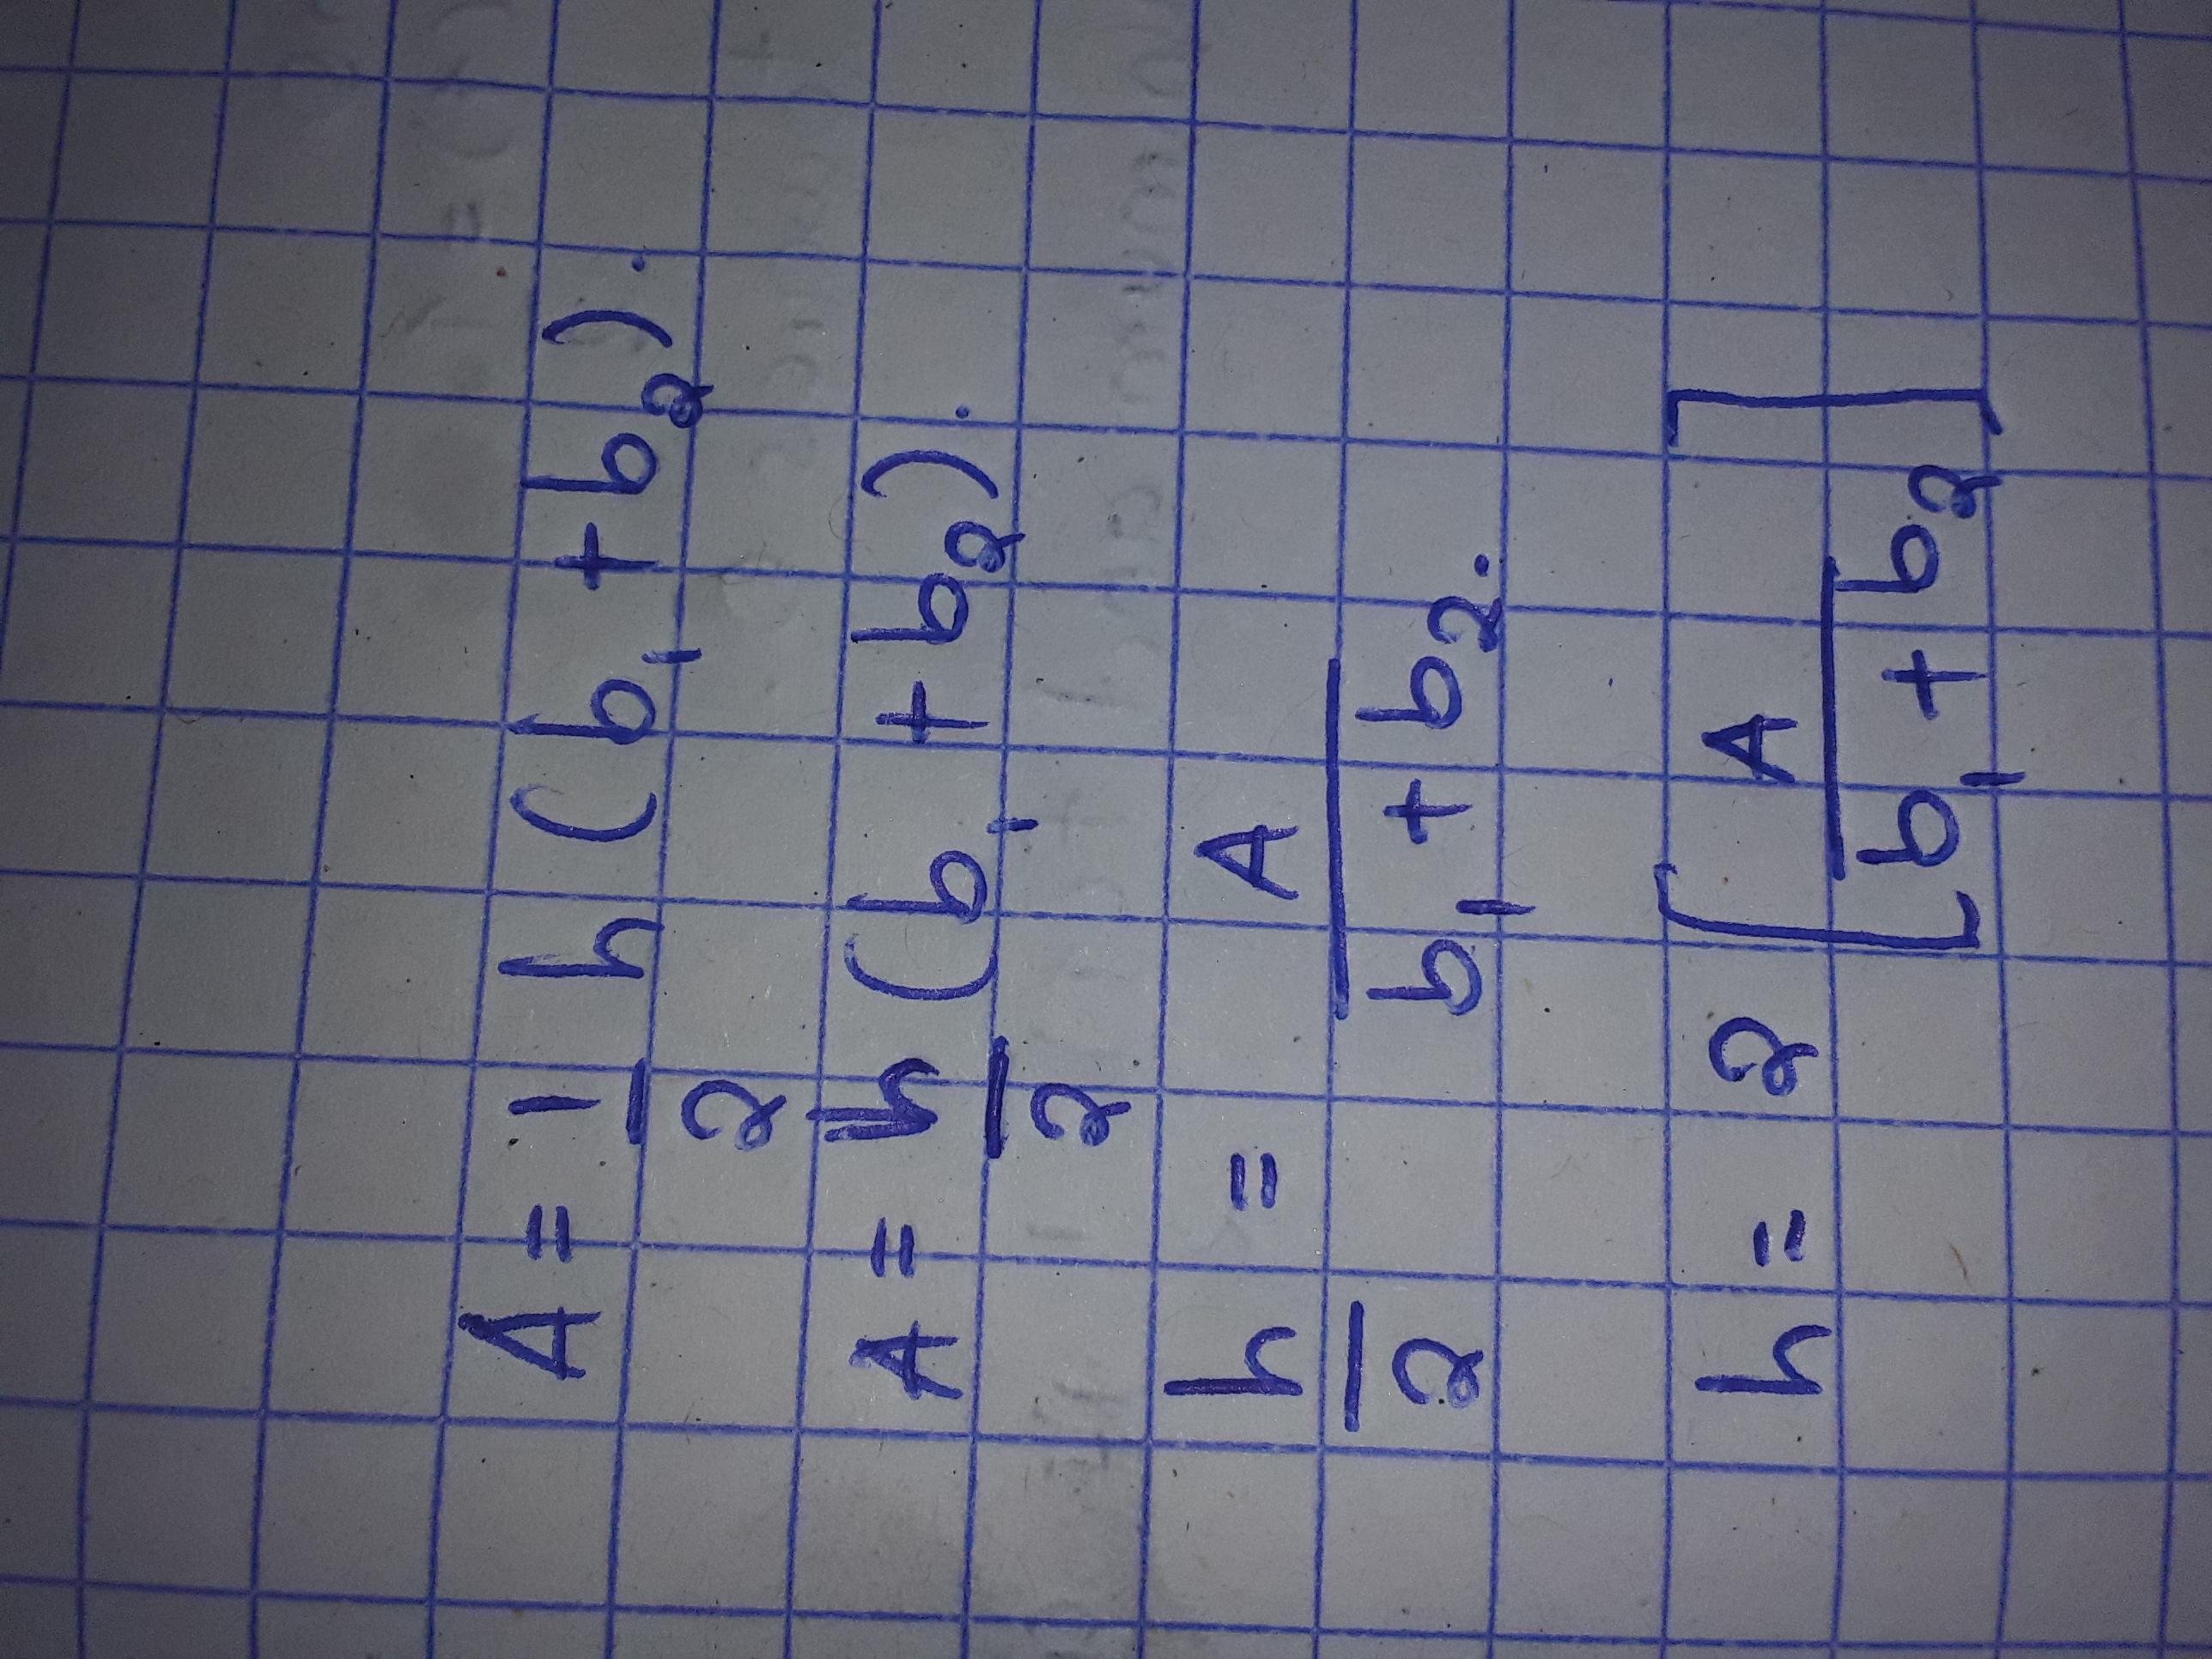 A = 1/2 h (b₁ + b₂).
A = h/2 (b₁ + b₂).
h/2 = A/(b₁ + b₂).
h = 2 [A/(b₁ + b₂)]